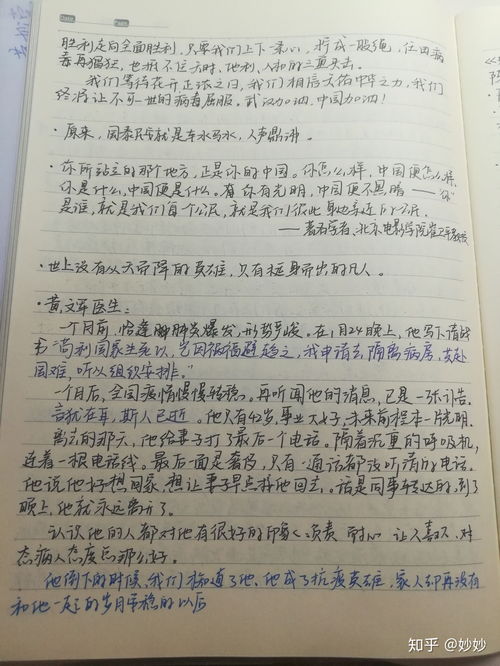 Date
Page
胜利走向全面胜利，只要我们上下一条心，拧成一股绳，任由病
毒再猖狂，也抵不过天时、地利、人和的三重夹击。
我们等待花开正浓之日，我们相信天佑中华之力，我们
终将让不可一世的病毒屈服。武汉加油，中国加油！
·原来，国泰民安就是车水马水，人声鼎沸。
·你所站立的那个地方，正是你的中国。你怎么样，中国便怎么样，
你是什么，中国便是什么。有你有光明，中国便不黑暗——"你"
是谁，就是我们每个公民，就是我们彼此身边亲近的
——著名学者、北京电影学院崔卫平教授
·世上没有从天而降的英雄，只有挺身而出的凡人。
·黄文军医生：
一个月前，恰逢肺炎爆发，形势严峻。在1月24晚上，他写下请战
书"苟利国家生死以，岂因祸福避趋之，我申请去隔离病房，共赴
国难，听从组织安排。"
一个月后，全国疫情慢慢转稳。再听闻他的消息，已是一张讣告。
言犹在耳，斯人已逝。他只有42岁，事业大好，未来前程本一片光明。
离去的那天，他给妻子打了最后一个电话。隔着沉重的呼吸机，
连着一根电话线。最后一面是奢侈，只有一通话都没听清的电话。
他说他好想回家，想让妻早点接他回去。话是同事转达的，到了
晚上，他就永远离开了。
认识他的人都对他有很好的印象：负责 耐心 让人喜欢，对
态病人态度总那么好。
他倒下的时候，我们才知道了他，他成了抗疫英雄，家人却再没有
和他一起的岁月平稳的以后
知乎 @妙妙